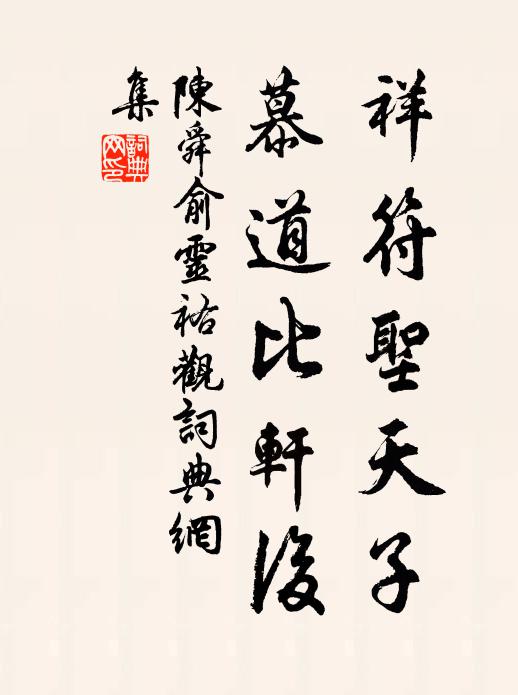 祥符聖天子
慕道比軒後
陳舜俞靈祐觀詞典網
集
詞典網印